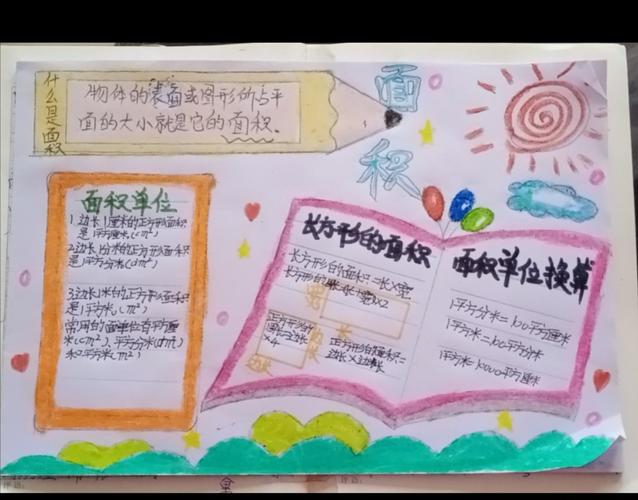 什么是面积
物体的表面或图形的占平
面的大小就是它的面积.
面积
面积单位
1.边长1厘米的正方形面积
是1平方厘米.(cm²)
2.边长1分米的正方形面积
是1平方分米(dm²)
3.边长1米的正方形面积
是1平方米.(m²)
常用的面单位有平方厘
米(cm²)、平方分米(dm²)
和平方米(m²)
长方形的面积
长方形的面积=长×宽
正方形的
周长=边长
×4
长
正方形的面积=
边长×边长
面积单位换算
1平方分米=100平方厘米
1平方米=100平方分米
1平方米=10000平方厘米